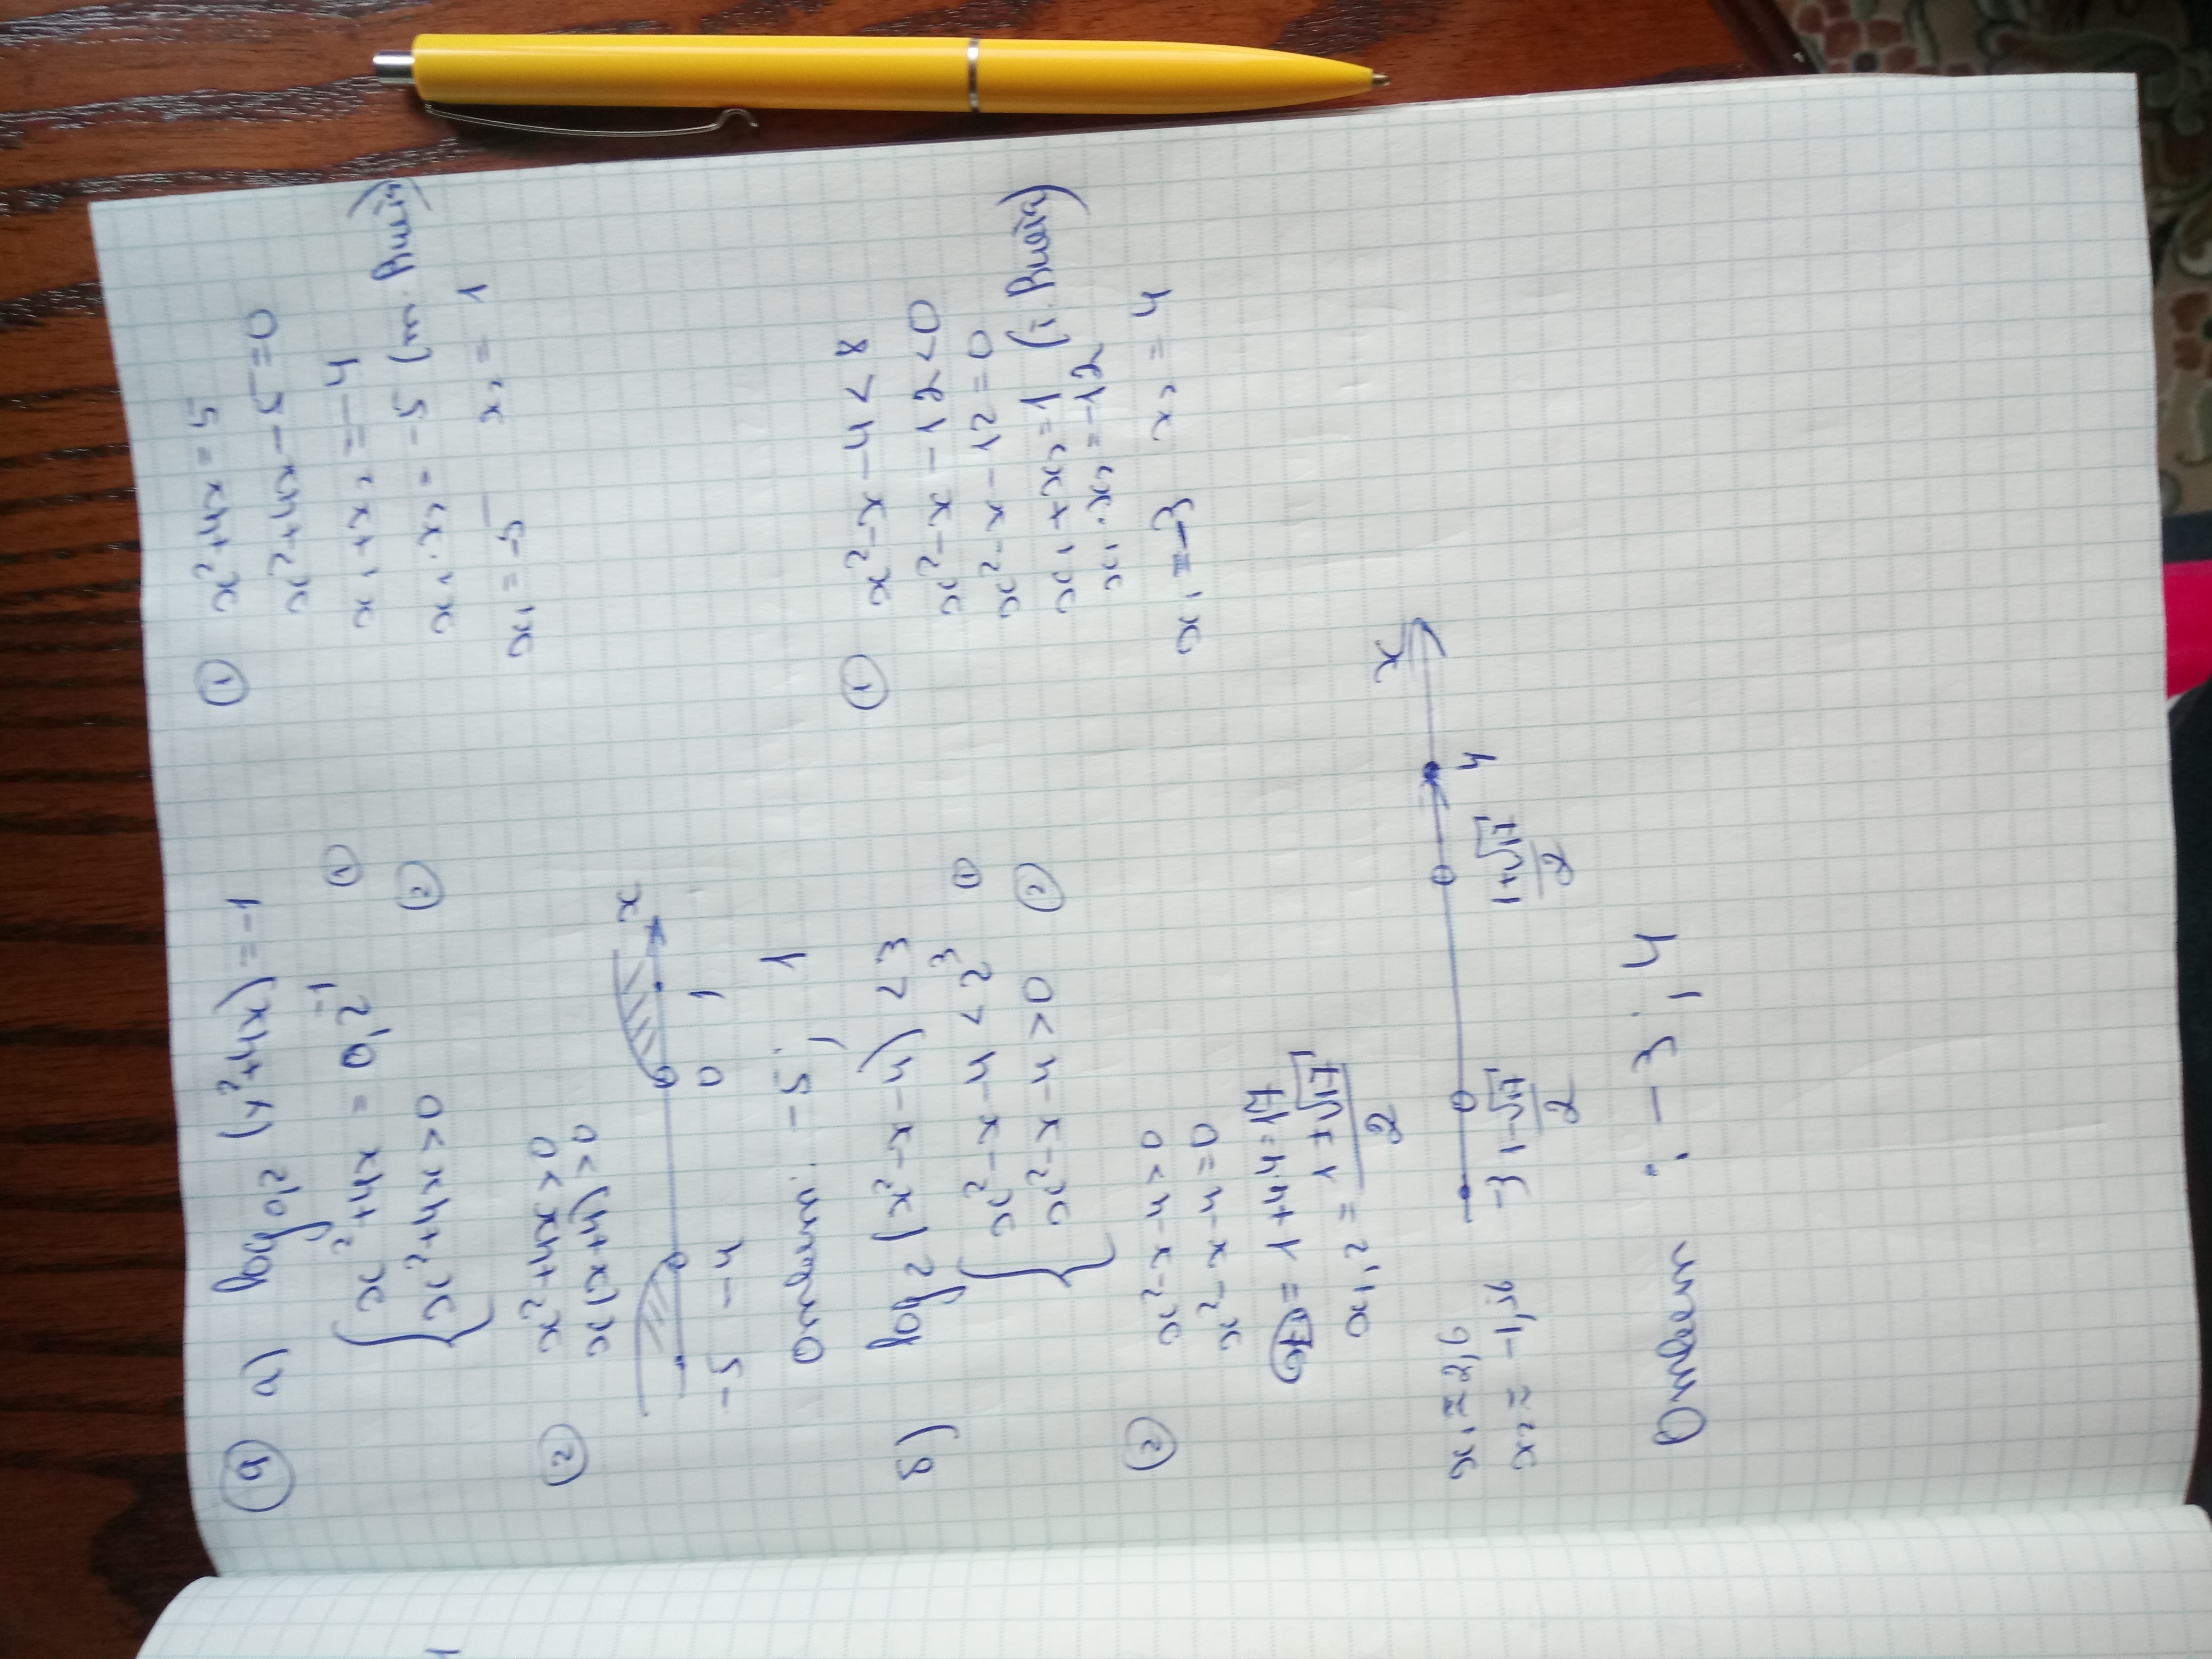 ④ а) log₀,₂ (x²+4x) = -1
{ x²+4x = 0,2⁻¹ ①
x²+4x>0 ②
① x²+4x=5
x²+4x-5=0
x₁+x₂ = -4
x₁·x₂ = -5 (т. Виета)
x₁=-5 x₂ = 1
② x²+4x>0
x(x+4)>0
x
-5 -4 0 1
Ответ: -5; 1
б) log₂ (x²-x-4) <3
{ x²-x-4<2³ ①
x²-x-4>0 ②
① x²-x-4<8
x²-x-12<0
x²-x-12=0
x₁+x₂=1 (т. Виета)
x₁·x₂=-12
x₁=-3 x₂=4
② x²-x-4>0
x²-x-4=0
D=1+4·4=17
x₁,₂ = 1±√17/2
x₁=2,6
x₂=-1,56
x
-3 1-√17/2 1+√17/2 4
Ответ: -3; 4